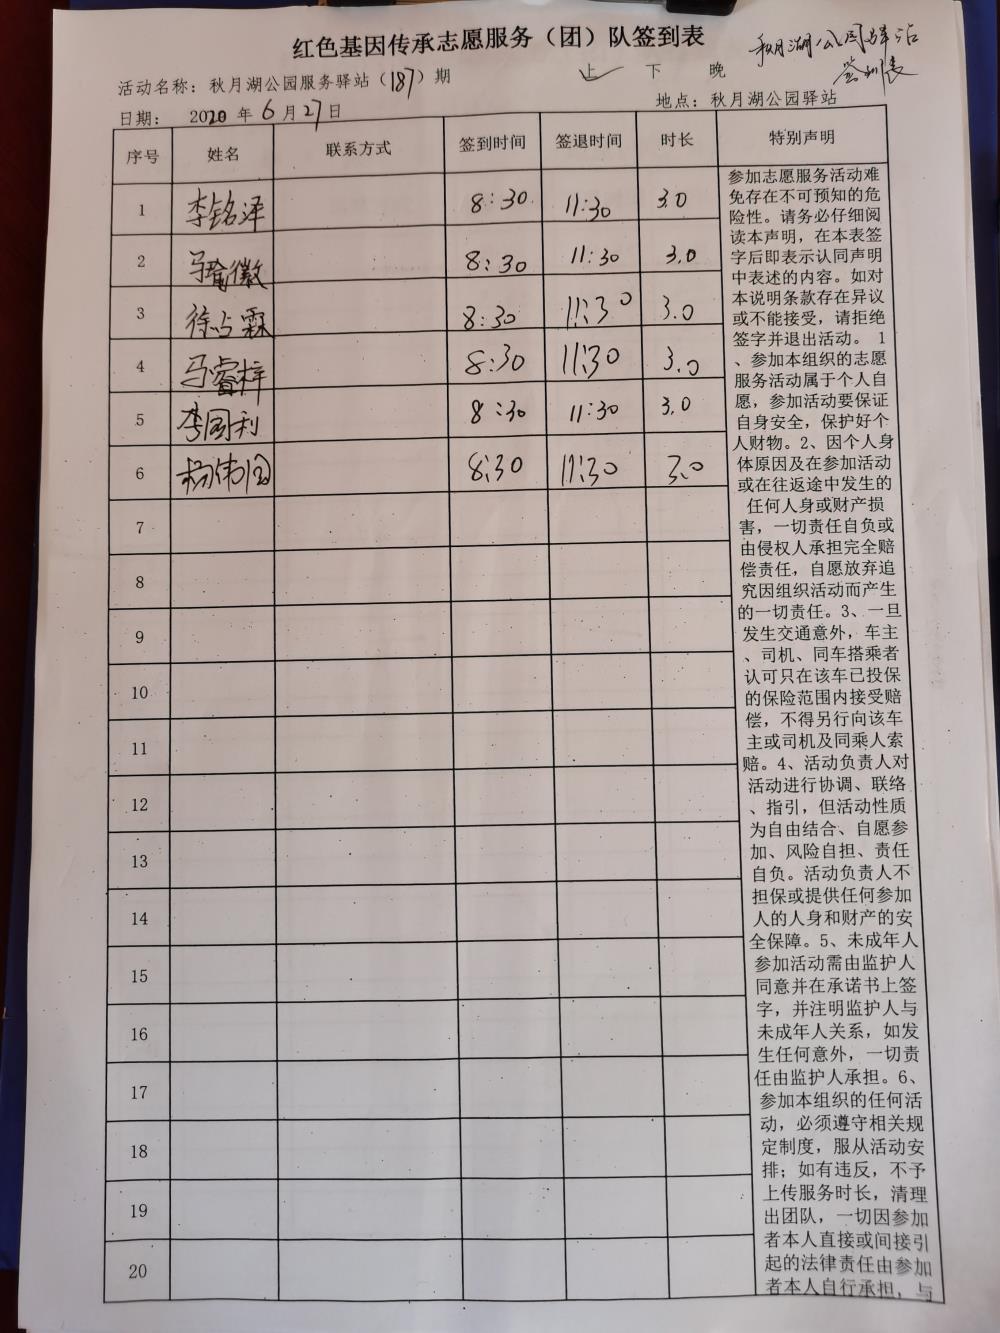 红色基因传承志愿服务（团）队签到表
秋月湖公园驿站
签到表
活动名称：秋月湖公园服务驿站（187）期 上 下 晚
日期： 2020 年 6 月 27 日 地点：秋月湖公园驿站
序号 姓名 联系方式 签到时间 签退时间 时长 特别声明
1 李铭泽 8:30 11:30 3.0
2 马瑜徽 8:30 11:30 3.0
3 徐占霖 8:30 11:30 3.0
4 马睿梓 8:30 11:30 3.0
5 李国利 8:30 11:30 3.0
6 杨伟国 8:30 11:30 3.0
7
8
9
10
11
12
13
14
15
16
17
18
19
20
参加志愿服务活动难
免存在不可预知的危
险性。请务必仔细阅
读本声明，在本表签
字后即表示认同声明
中表述的内容。如对
本说明条款存在异议
或不能接受，请拒绝
签字并退出活动。 1
、参加本组织的志愿
服务活动属于个人自
愿，参加活动要保证
自身安全，保护好个
人财物。2、因个人身
体原因及在参加活动
或在往返途中发生的
任何人身或财产损
害，一切责任自负或
由侵权人承担完全赔
偿责任，自愿放弃追
究因组织活动而产生
的一切责任。3、一旦
发生交通意外，车主
、司机、同车搭乘者
认可只在该车已投保
的保险范围内接受赔
偿，不得另行向该车
主或司机及同乘人索
赔。4、活动负责人对
活动进行协调、联络
、指引，但活动性质
为自由结合、自愿参
加、风险自担、责任
自负。活动负责人不
担保或提供任何参加
人的人身和财产的安
全保障。5、未成年人
参加活动需由监护人
同意并在承诺书上签
字，并注明监护人与
未成年人关系，如发
生任何意外，一切责
任由监护人承担。6、
参加本组织的任何活
动，必须遵守相关规
定制度，服从活动安
排；如有违反，不予
上传服务时长，清理
出团队，一切因参加
者本人直接或间接引
起的法律责任由参加
者本人自行承担，与